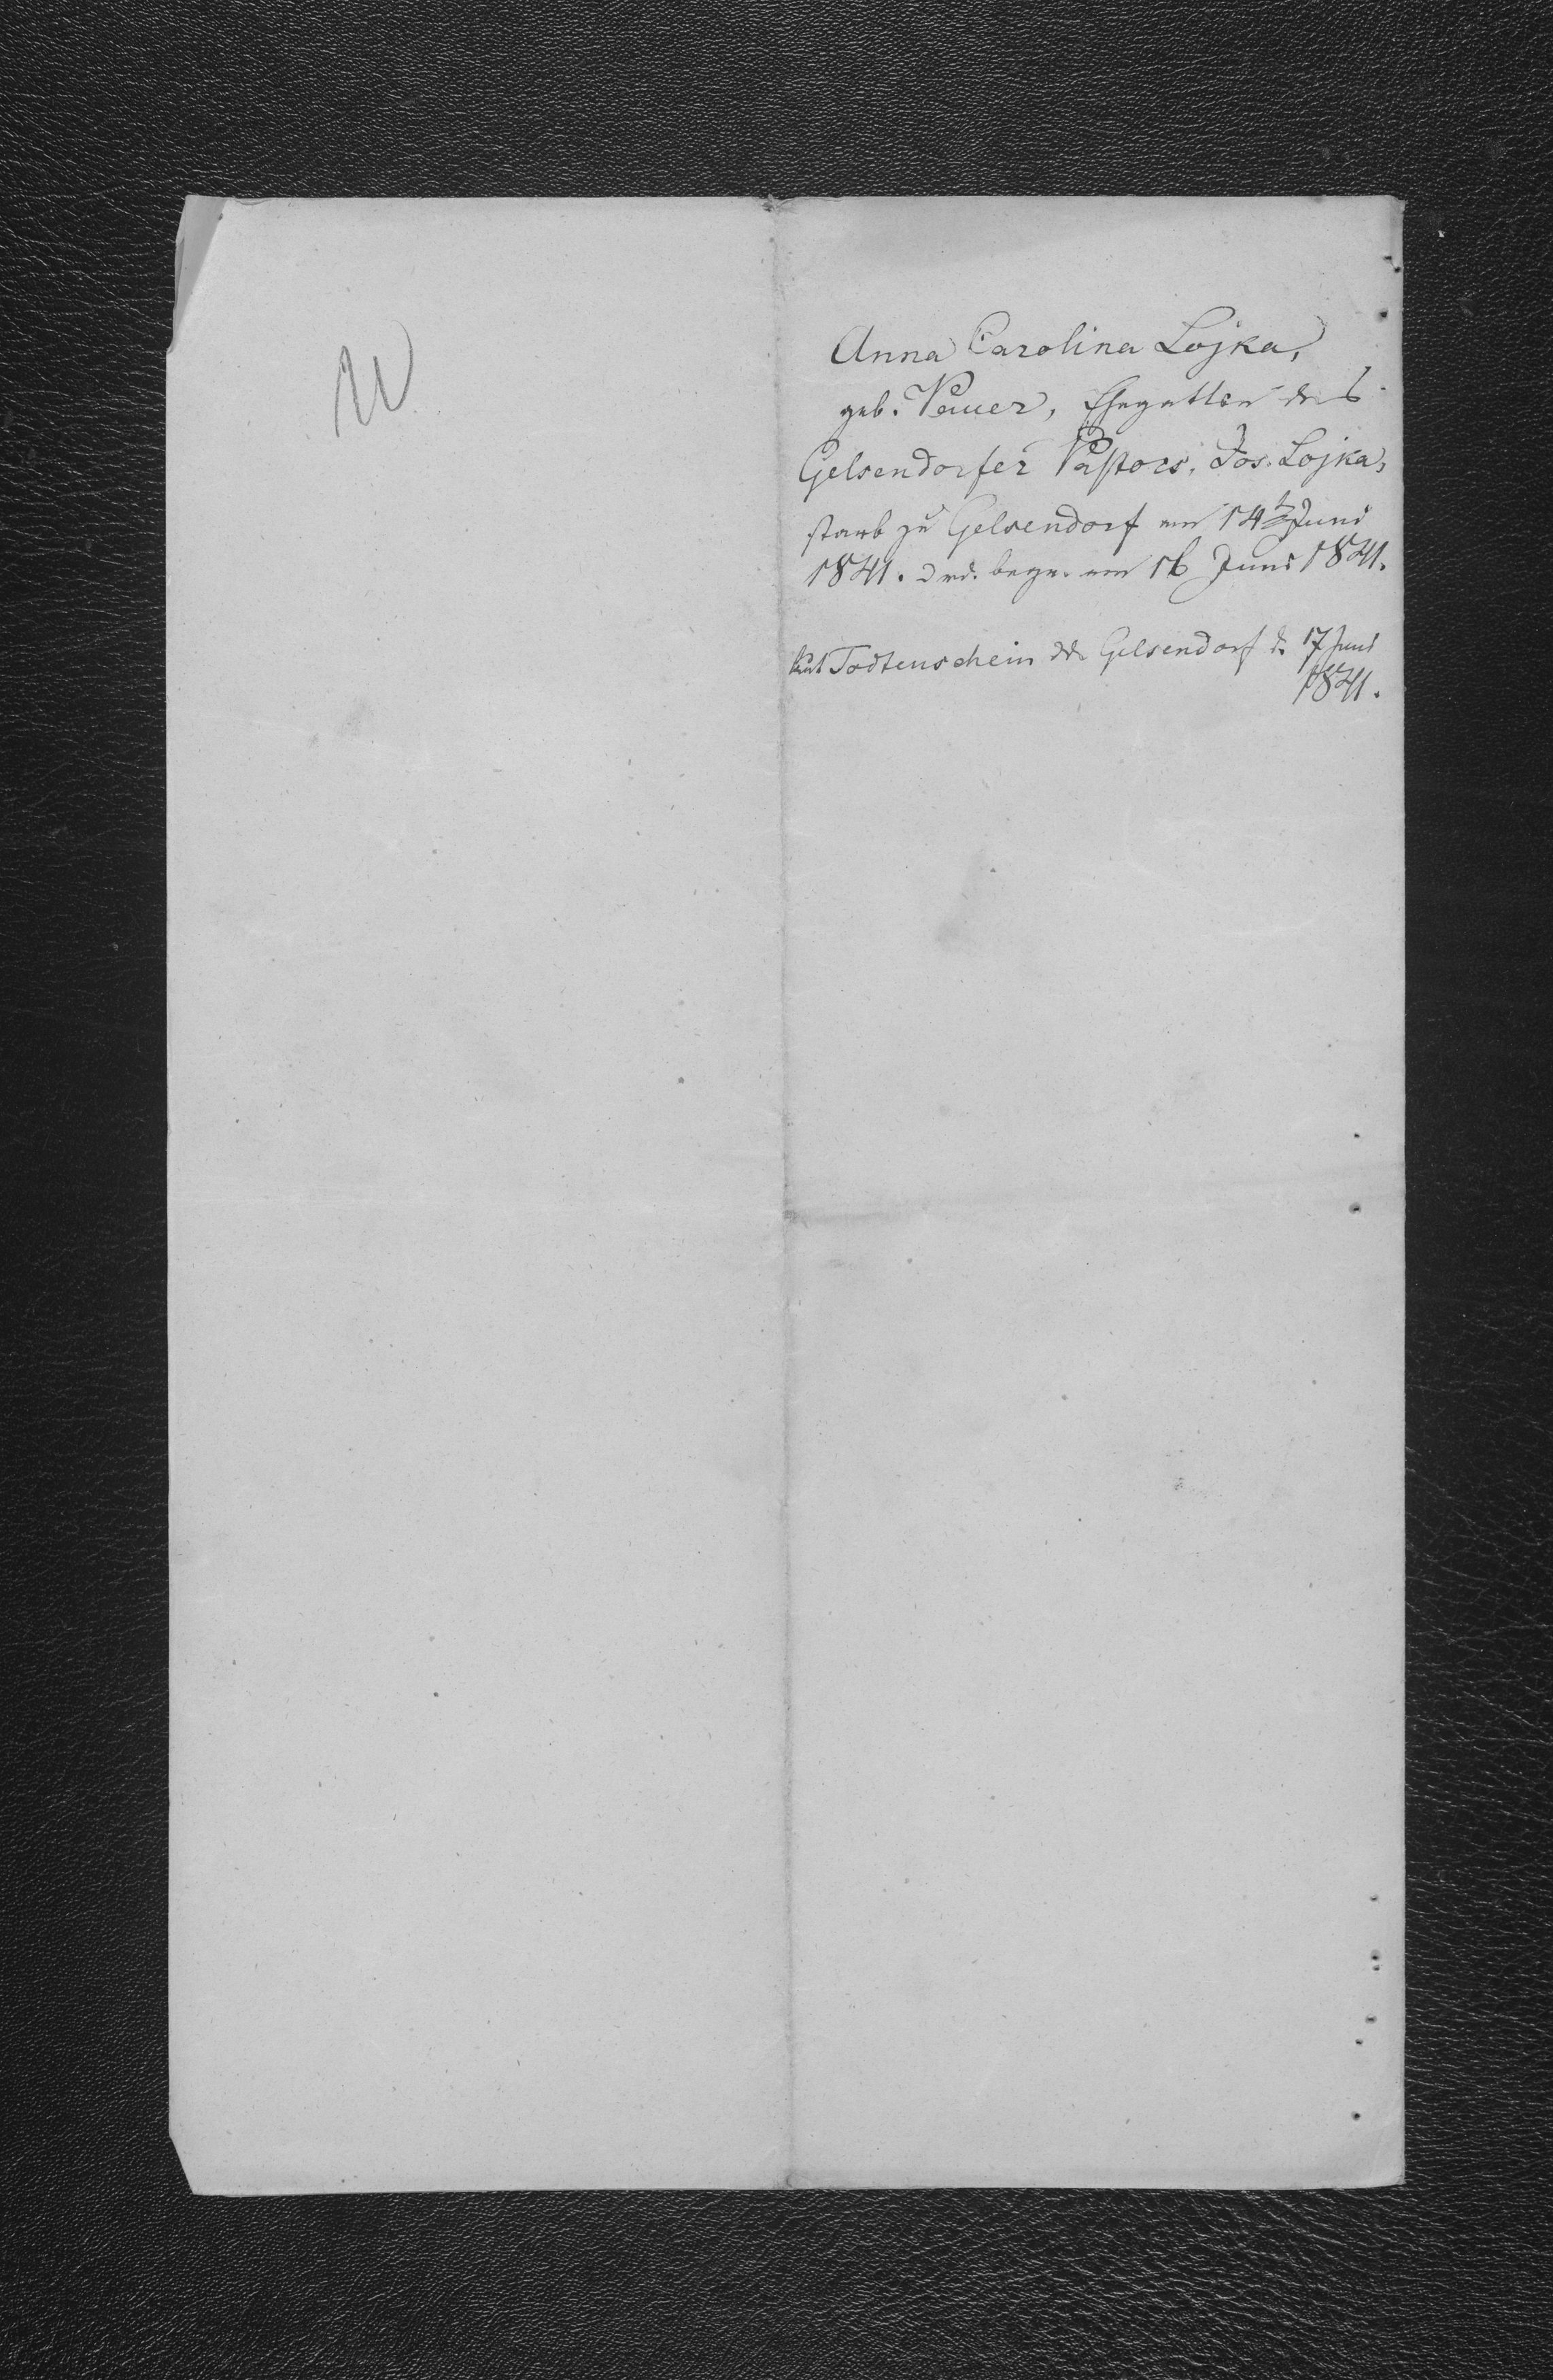 W
Anna Carolina Lojka,
geb. Pauer, Ehegattin des
Gelsendorfer Pastors, Jos. Lojka,
starb zu Gelsendorf am 14ten Juni
1841. und. begr. am 16 Juni 1841.
laut Todtenschein dd. Gelsendorf d. 17 Juni
1841.